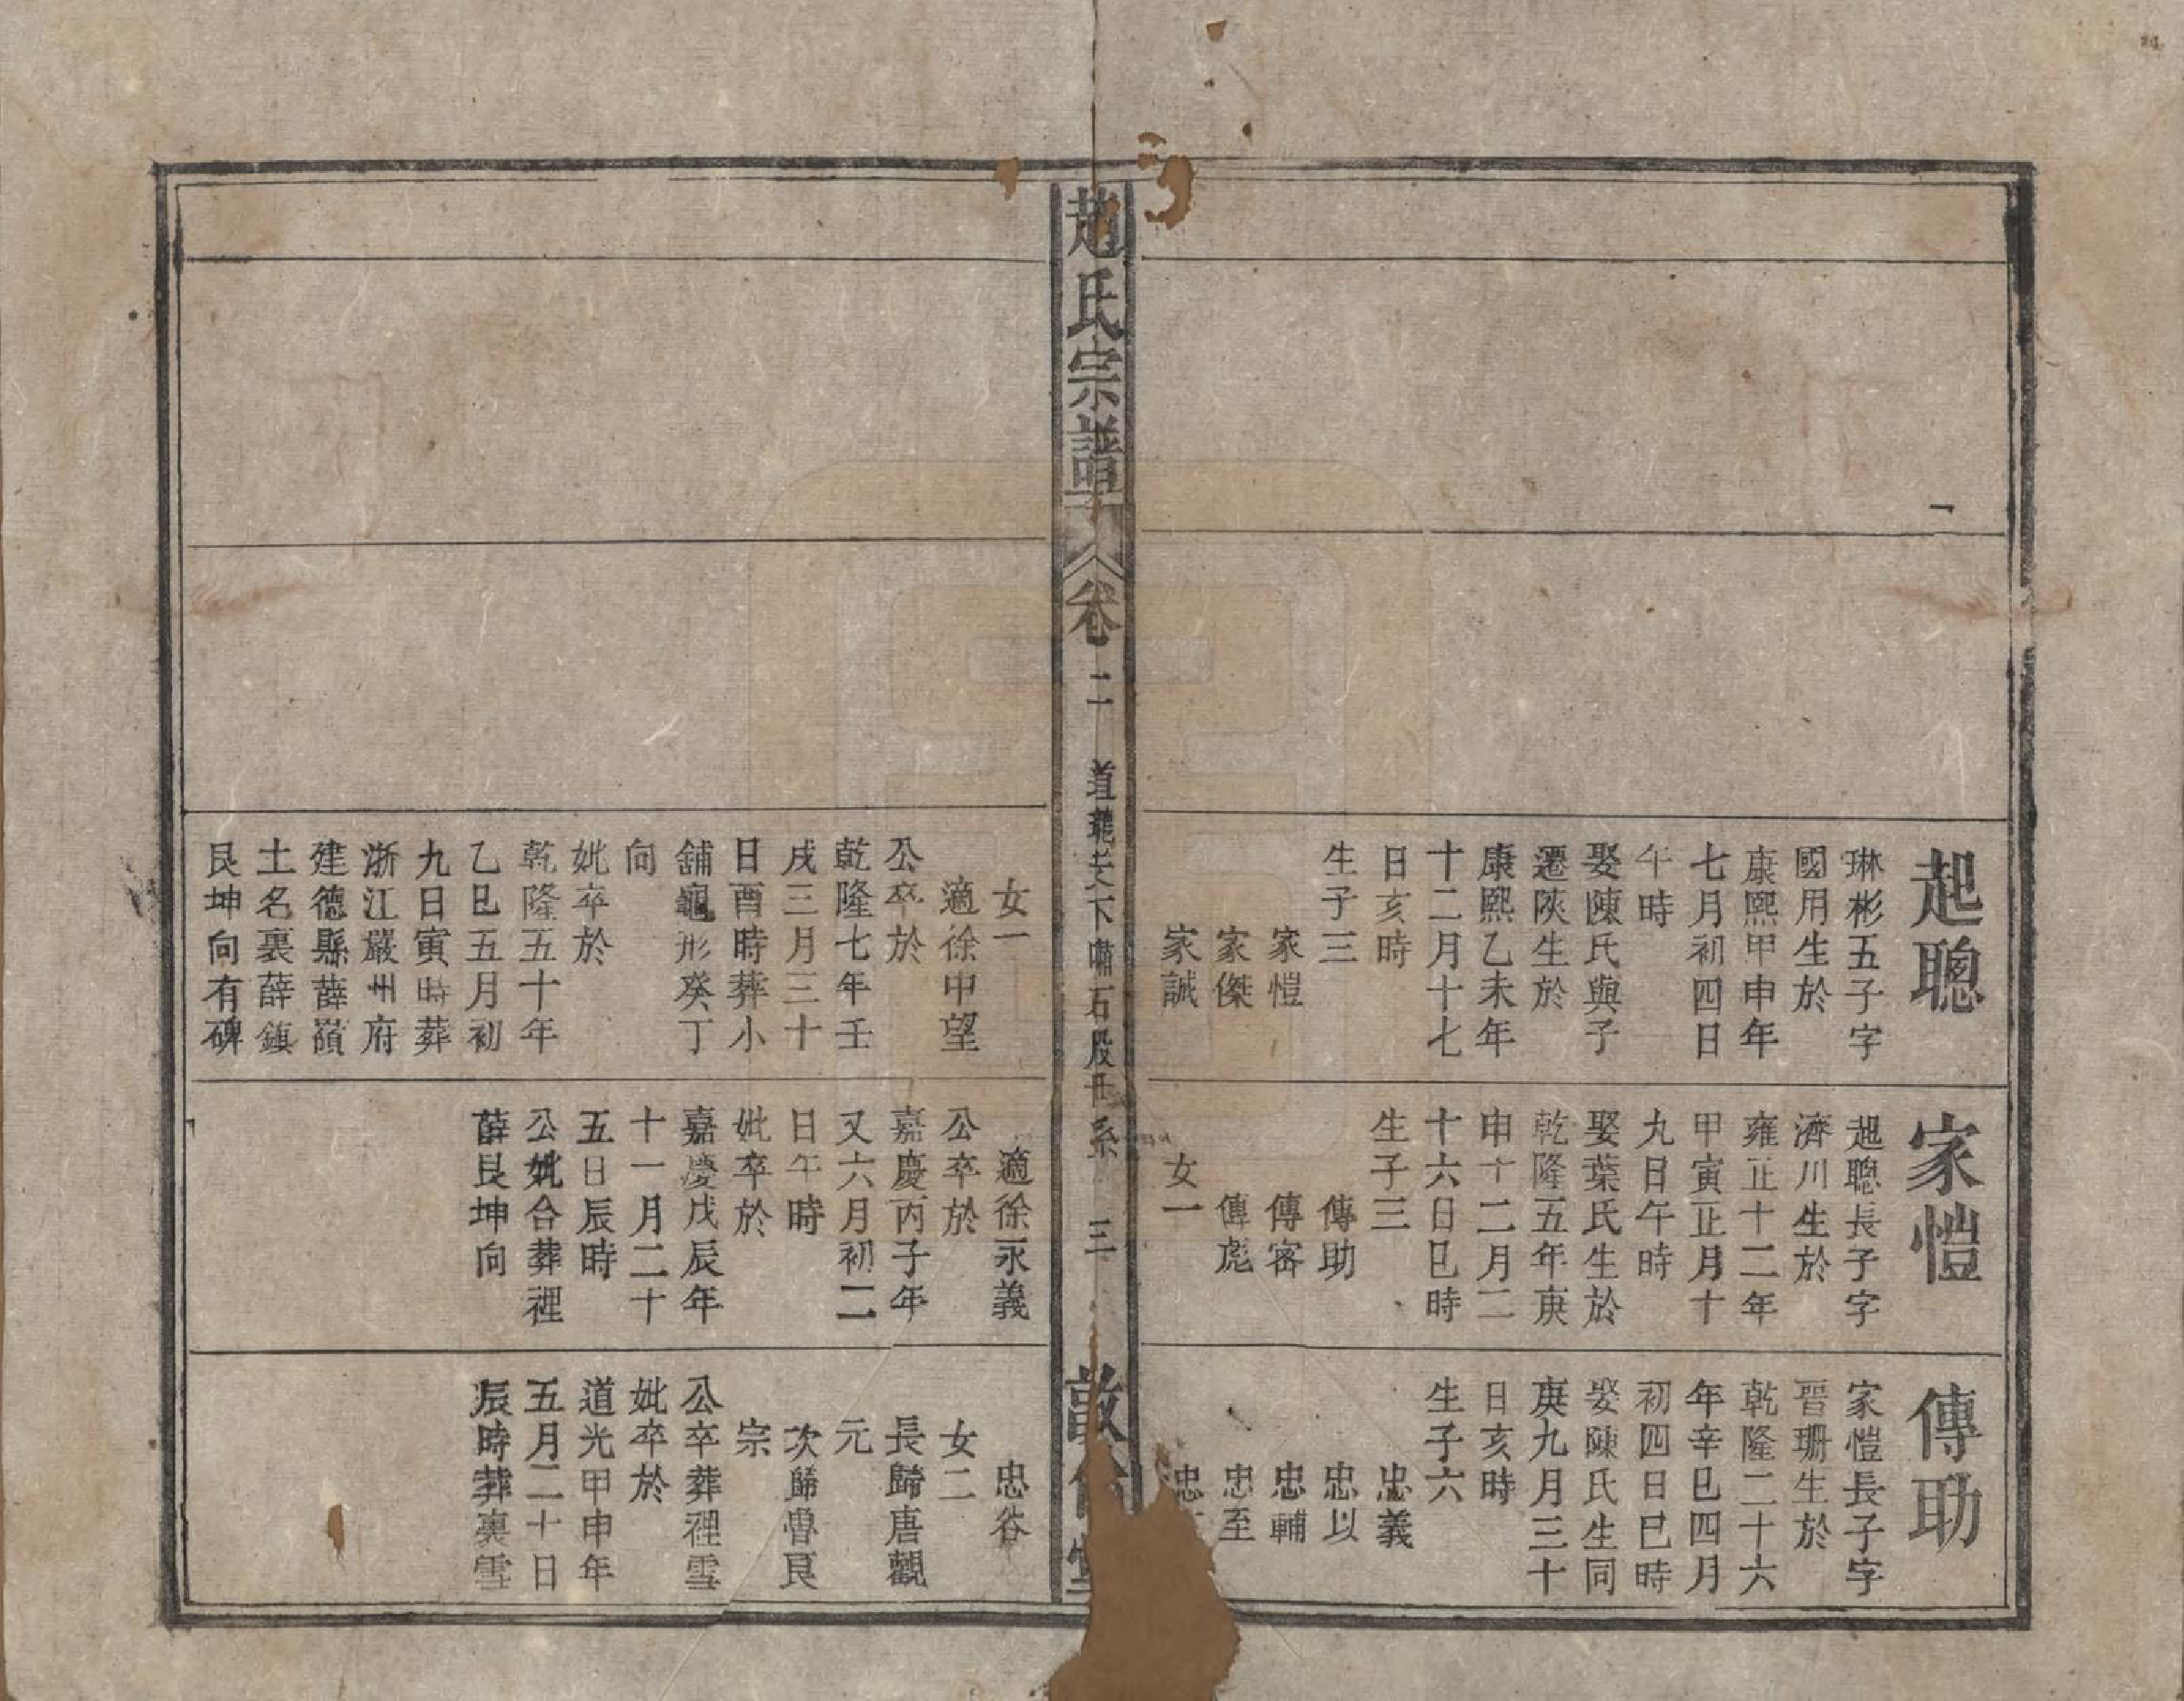 起聰
琳彬五子字
國用生於
康熙甲申年
七月初四日
午時
娶陳氏與子
遷陝生於
康熙乙未年
十二月十七
日亥時
生子三
家愷
家傑
家誠
女一
適徐申望
公卒於
乾隆七年壬
戌三月三十
日酉時葬小
舖龜形癸丁
向
妣卒於
乾隆五十年
乙巳五月初
九日寅時葬
浙江嚴州府
建德縣薛嶺
土名裏薛鎮
艮坤向有碑
家愷
起聰長子字
濟川生於
雍正十二年
甲寅正月十
九日午時
娶葉氏生於
乾隆五年庚
申十二月二
十六日巳時
生子三
傳助
傳密
傳彪
女一
適徐永義
公卒於
嘉慶丙子年
又六月初二
日午時
妣卒於
嘉慶戊辰年
十一月二十
五日辰時
公妣合葬裡
薛艮坤向
傳助
家愷長子字
晉珊生於
乾隆二十六
年辛巳四月
初四日巳時
娶陳氏生同
庚九月三十
日亥時
生子六
忠義
忠以
忠輔
忠至
忠
忠谷
女二
長歸唐觀
元
次歸魯良
宗
公卒葬裡雪
妣卒於
道光甲申年
五月二十日
辰時葬裏雪
趙氏宗譜
卷二
道龍之下嘯石股世系
三
敦
堂